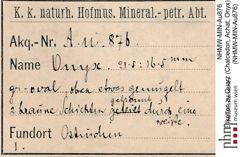 K. k. naturh. Hofmus. Mineral.-petr. Abt.
Akq.-Nr. A.u. 876
Name Onyx. 21·5:16·5 mm
gr. oval, oben etwas gemugelt
2 braune Schichten getrennt durch eine
weiße.
Fundort Ostindien
NHMW-MIN-Au876
(Chalcedon, Achat, Onyx)
NHMW-MIN-Au876
nhm
museum wien